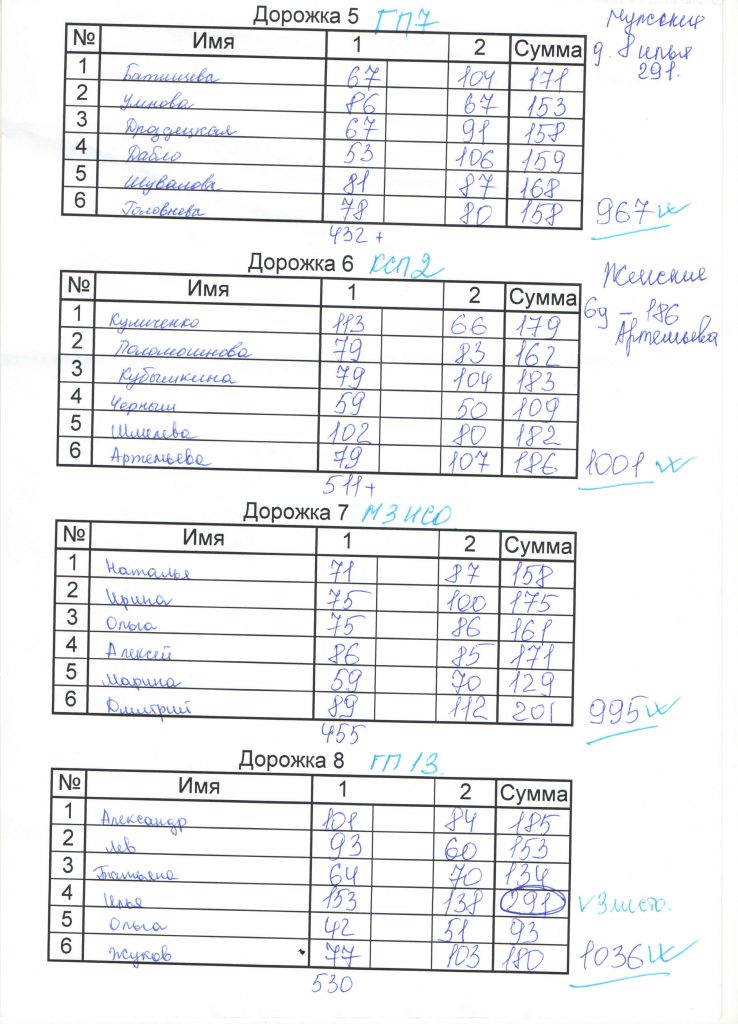 Дорожка 5 ГП7
Мужские
д. 8 Илья
291.
№ Имя 1 2 Сумма
1 Батищева 67 104 171
2 Умнова 86 67 153
3 67 91 158
4 Дабло 53 106 159
5 Шувалова 81 87 168
6 Головнева 78 80 158 967
432 +
Дорожка 6 КСП2
Женские
6д – 186
Артемьева
№ Имя 1 2 Сумма
1 Куличенко 113 66 179
2 Поломошнова 79 83 162
3 Кубышкина 79 104 183
4 Черныш 59 50 109
5 Шмелева 102 80 182
6 Артемьева 79 107 186 1001
511 +
Дорожка 7 МЗ ИСО
№ Имя 1 2 Сумма
1 Наталья 71 87 158
2 Ирина 75 100 175
3 Ольга 75 86 161
4 Алексей 86 85 171
5 Марина 59 70 129
6 Дмитрий 89 112 201 995
455
Дорожка 8 ГП 13.
№ Имя 1 2 Сумма
1 Александр 101 84 185
2 Лев 93 60 153
3 Татьяна 64 70 134
4 Илья 153 138 291 √ 3 место.
5 Ольга 42 51 93
6 Жуков 77 103 180 1036
530